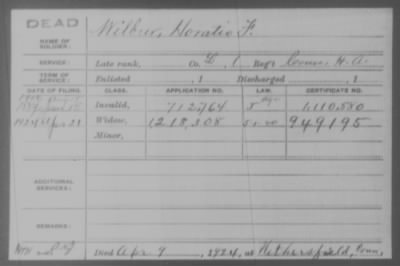 DEAD
NAME OF SOLDIER: Wilbur, Horatio F.
SERVICE: Late rank, Co. L, 1 Reg't Conn. H. A.
TERM OF SERVICE: Enlisted , 1 Discharged , 1
DATE OF FILING. CLASS. APPLICATION NO. LAW. CERTIFICATE NO.
Invalid, 712,764 1,110,580
1924 Apr 21 Widow, 1,218,308 949195
Minor,
ADDITIONAL SERVICES:
REMARKS:
Died Apr 9, 1924, at Wethersfield, Conn,